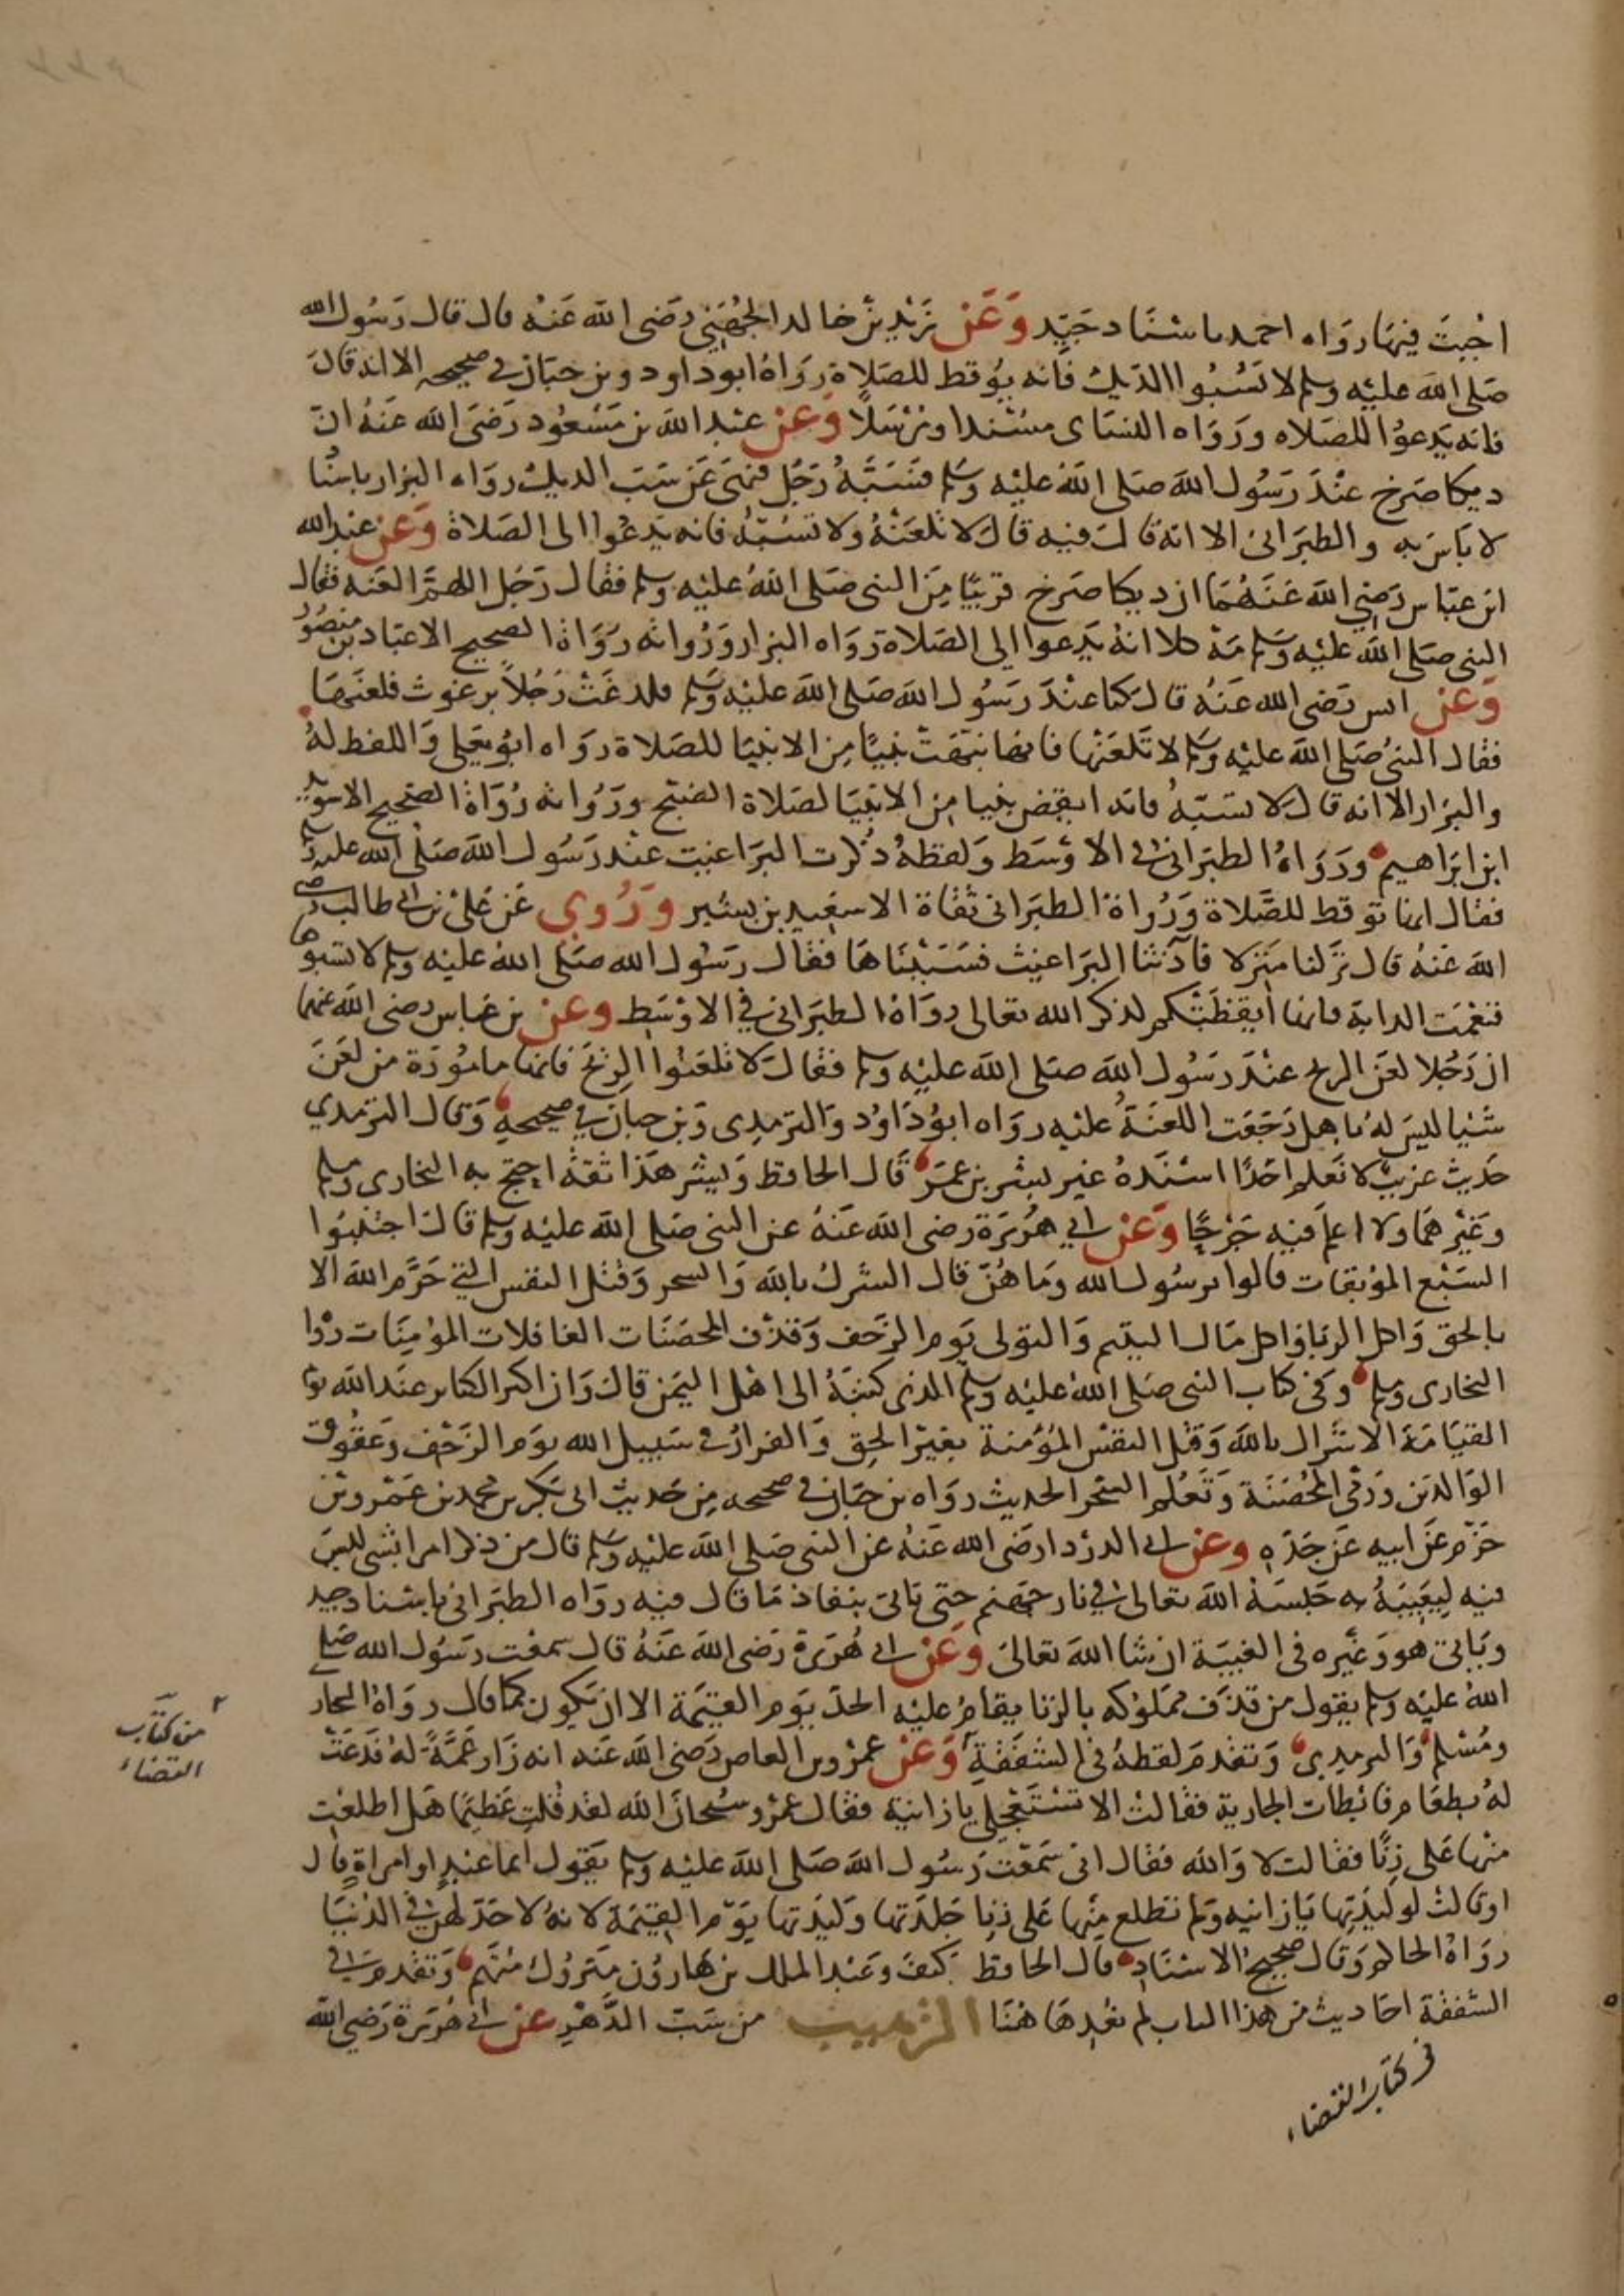 اجبت فيها رواه احمد باسناد جيد وعن زيد بن خالد الجهني رضى الله عنه قال قال رسول الله
صلى الله عليه وسلم لا تسبوا الديك فانه يوقظ للصلاة رواه ابو داود وبن حبان في صحيحه الا انه قال
فانه يدعوا للصلاه ورواه النساى مسندا ومرسلا وعن عبد الله بن مسعود رضى الله عنه ان
ديكا صرخ عند رسول الله صلى الله عليه وسلم فسبه رجل فنهى عن سب الديك رواه البزار باسنا
لا باس به والطبرانى الا انه قال فيه قال لا تلعنه ولا تسبه فانه يدعوا الى الصلاة وعن عبد الله
ابن عباس رضي الله عنهما ان ديكا صرخ قريبا من النبى صلى الله عليه وسلم فقال رجل اللهم العنه فقال
النبى صلى الله عليه وسلم مه كلا انه يدعوا الى الصلاة رواه البزار ورواته رواة الصحيح الا عباد بن منصور
وعن انس رضى الله عنه قال كنا عند رسول الله صلى الله عليه وسلم فلدغت رجلا برغوث فلعنها
فقال النبى صلى الله عليه وسلم لا تلعنها فانها نبهت نبيا من الانبيا للصلاة رواه ابو يعلى واللفظ له
والبزار الا انه قال لا تسبه فانه ايقض نبيا من الانبيا لصلاة الصبح ورواته رواة الصحيح الا سويد
ابن ابراهيم ورواه الطبرانى فى الاوسط ولفظه ذكرت البراغيت عند رسول الله صلى الله عليه وسلم
فقال انها توقظ للصلاة ورواة الطبرانى ثقاة الا سعيد بن بشير وروي عن على بن ابى طالب رضى
الله عنه قال نزلنا منزلا فآذتنا البراغيث فسببناها فقال رسول الله صلى الله عليه وسلم لا تسبوها
فنعمت الدابة فانها ايقظتكم لذكر الله تعالى رواه الطبرانى في الاوسط وعن بن عباس رضى الله عنهما
ان رجلا لعن الريح عند رسول الله صلى الله عليه وسلم فقال لا تلعنوا الريح فانها مامورة من لعن
شيا ليس له باهل رجعت اللعنة عليه رواه ابو داود والترمدى وبن حبان في صحيحه وقال الترمدي
حديث غريب لا نعلم احدا اسنده غير بشر بن عمر قال الحافظ وبشر هذا ثقة احتج به البخارى ومسلم
وغيرهما ولا اعلم فيه جرحا وعن ابي هريرة رضى الله عنه عن النبى صلى الله عليه وسلم قال اجتنبوا
السبع الموبقات قالوا يرسول الله وما هن قال الشرك بالله والسحر وقتل النفس التي حرم الله الا
بالحق واكل الربا واكل مال اليتيم والتولى يوم الزحف وقذف المحصنات الغافلات المؤمنات رواه
البخارى ومسلم وفى كتاب النبى صلى الله عليه وسلم الذى كتبه الى اهل اليمن قال وان اكبر الكبائر عند الله يوم
القيامة الاشراك بالله وقتل النفس المؤمنة بغير الحق والفرار في سبيل الله يوم الزحف وعقوق
الوالدين ورمى المحصنة وتعلم السحر الحديث رواه بن حبان في صحيحه من حديث ابى بكر بن محمد بن عمرو بن
حزم عن ابيه عن جده وعن ابى الدردا رضى الله عنه عن النبى صلى الله عليه وسلم قال من ذكر امرا بشى ليس
فيه ليعيبه به حبسه الله تعالى في نار جهنم حتى ياتى بنفاذ ما قال فيه رواه الطبرانى باسناد جيد
وياتى هو وغيره فى الغيبة ان شا الله تعالى وعن ابى هريرة رضى الله عنه قال سمعت رسول الله صلى
الله عليه وسلم يقول من قذف مملوكه بالزنا يقام عليه الحد يوم القيمة الا ان يكون كما قال رواه البخار
ومسلم والترمدى وتقدم لفظه فى الشفقة وعن عمرو بن العاص رضى الله عنه انه زار عمة له فدعت
له بطعام فابطات الجارية فقالت الا تستعجلى يا زانية فقال عمرو سبحان الله لقد قلت عظيما هل اطلعت
منها على زنا فقالت لا والله فقال انى سمعت رسول الله صلى الله عليه وسلم يقول ايما عبد او امراة قال
او قالت لوليدتها يا زانيه ولم تطلع منها على زنا جلدتها وليدتها يوم القيمة لانه لا حد لهن في الدنيا
رواه الحاكم وقال صحيح الاسناد قال الحافظ كيف وعبد الملك بن هارون متروك متهم وتقدم فى
الشفقة احاديث من هذا الباب لم نعدها هنا الترهيب من سب الدهر عن ابى هريرة رضى الله
من كتاب
القضاء
فى كتاب القضاء